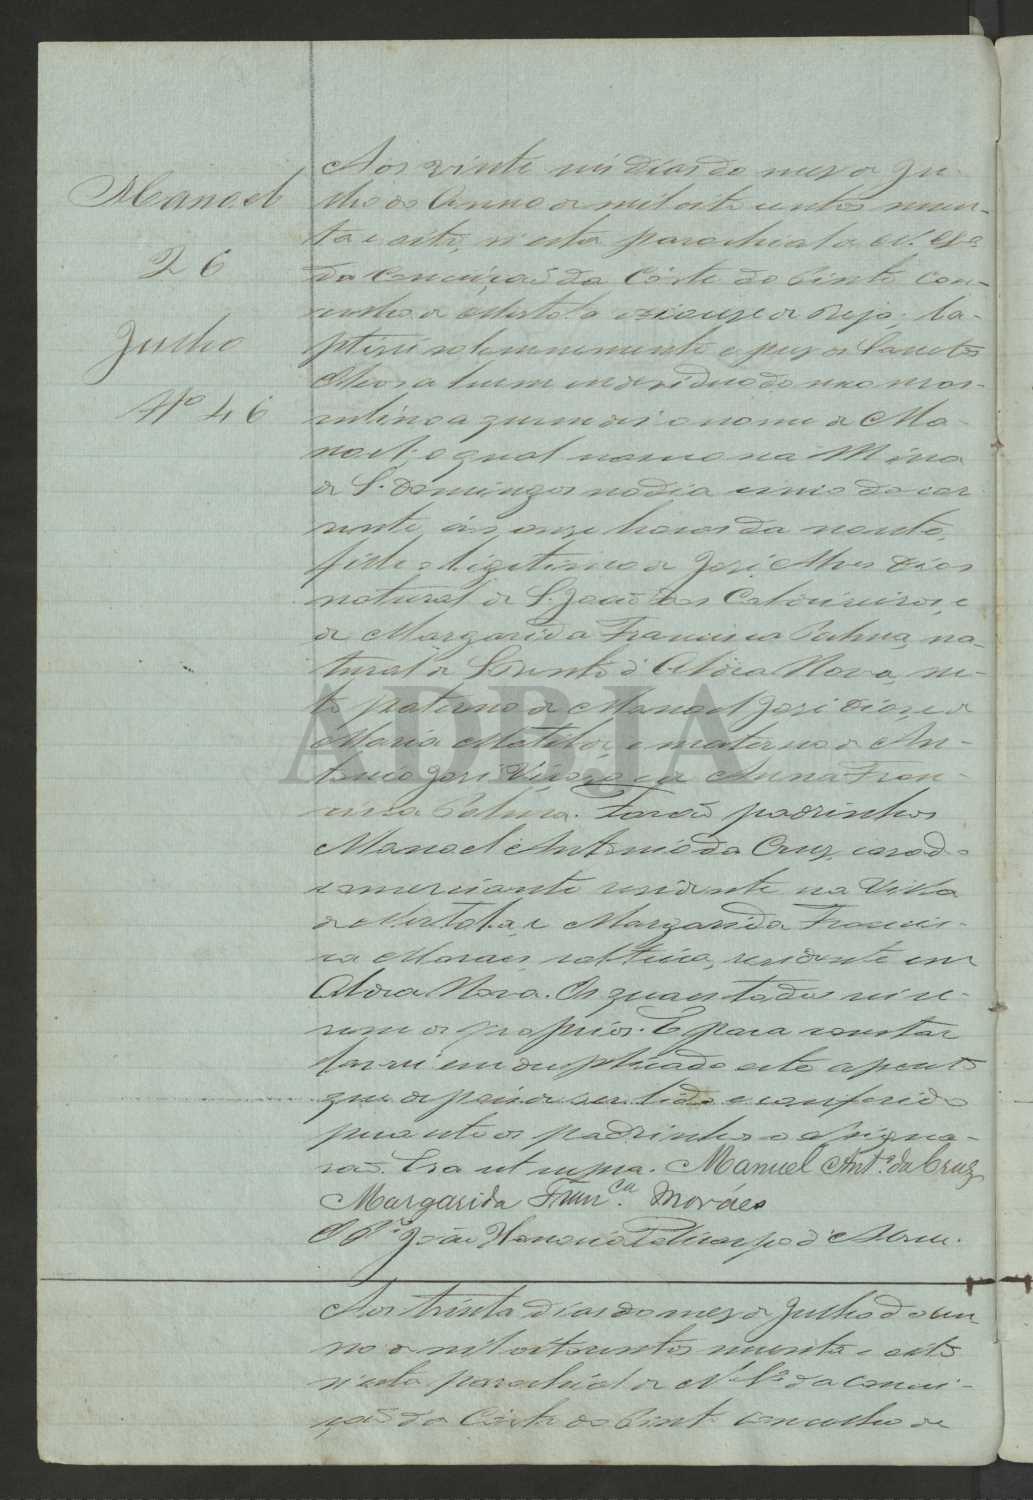 Manoel
26
Julho
Nº 46
Aos vinte seis dias do mez de Ju-
lho do anno de mil oito centos noven-
ta e oito, n'esta parochial de N. Srª
da Conceição da Côrte do Pinto, con-
celho de Mertola diocese de Beja, ba-
ptisei solemnemente e puz os Sanctos
Oleos a hum individuo do sexo mas-
culino a quem dei o nome de Ma-
noel, o qual nasceu na Mina
de S. Domingos no dia cinco do cor-
rente, ás onze horas da noute,
filho legitimo de José Alves Dias
natural de S. João dos Caldeireiros, e
de Margarida Francisca Palma, na-
tural de Aldeia Nova, ne-
to paterno de Manoel José Dias, e de
Maria Matilde, e materno de An-
tonio José e de Anna Fran-
cisca Palma. Forão padrinhos
Manoel Antonio da Cruz, casado
comerciante residente na Villa
de Mertola, e Margarida Francis-
ca Moraes, solteira, residente em
Aldeia Nova. Os quaes todos sei se-
rem os proprios. E para constar
lavrei em duplicado este assento
que depois de ser lido e conferido
perante os padrinhos o assigna-
rão. Era ut supra. Manuel Antº. da Cruz
Margarida Francª. Moráes
O Pº João PolICarpo d'Abreu.
Aos trinta dias do mez de Julho do an-
no de mil oitocentos noventa e oito
n'esta parochial de N. Sª da Concei-
ção da Côrte do Pinto concelho de
ADBJA